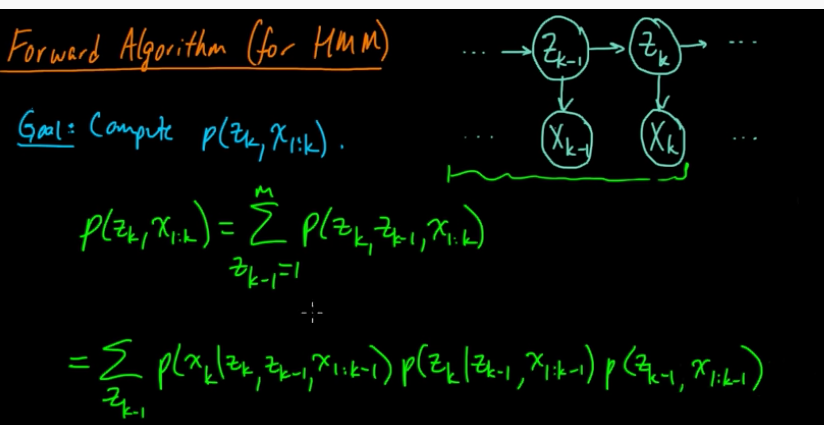 Forward Algorithm (for HMM)
... → Z_{k-1} → Z_k → ...
Goal: Compute p(z_k, x_{1:k}).
... X_{k-1} X_k ...
p(z_k, x_{1:k}) = ∑_{z_{k-1}=1}^{m} p(z_k, z_{k-1}, x_{1:k})
= ∑_{z_{k-1}} p(x_k | z_k, z_{k-1}, x_{1:k-1}) p(z_k | z_{k-1}, x_{1:k-1}) p(z_{k-1}, x_{1:k-1})